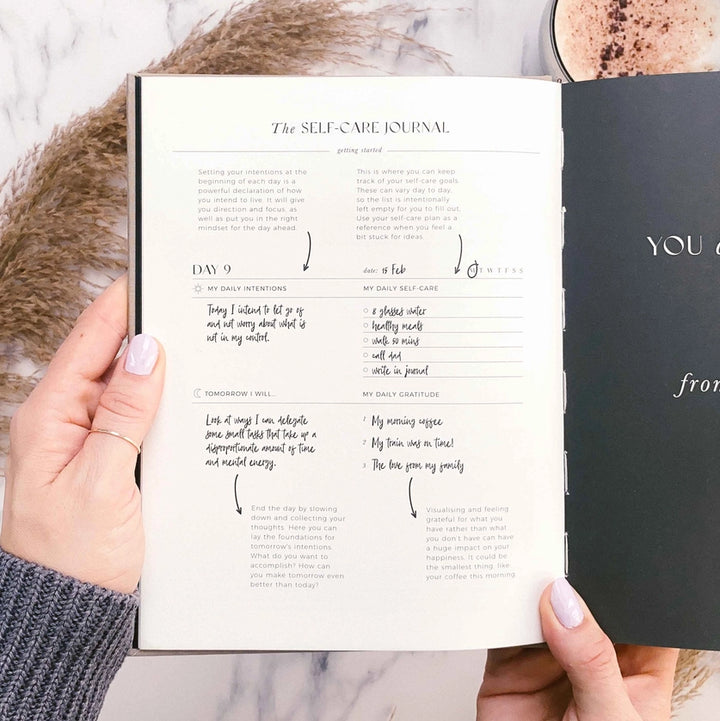 The SELF-CARE JOURNAL
getting started
Setting your intentions at the
beginning of each day is a
powerful declaration of how
you intend to live. It will give
you direction and focus, as
well as put you in the right
mindset for the day ahead.
This is where you can keep
track of your self care goals.
These can vary day to day,
so the list is intentionally
left empty for you to fill out.
Use your self-care plan as a
reference when you feel a
bit stuck for ideas.
DAY 9
date: 15 Feb
M T W T F S S
MY DAILY INTENTIONS
Today I intend to let go of
and not worry about what is
not in my control.
MY DAILY SELF-CARE
8 glasses water
healthy meals
walk 30 mins
call dad
write in journal
TOMORROW I WILL...
Look at ways I can delegate
some small tasks that take up a
disproportionate amount of time
and mental energy.
MY DAILY GRATITUDE
1 My morning coffee
2 My train was on time!
3 The love from my family
End the day by slowing
down and collecting your
thoughts. Here you can
lay the foundations for
tomorrow's intentions.
What do you want to
accomplish? How can
you make tomorrow even
better than today?
Visualising and feeling
grateful for what you
have rather than what
you don't have can have
a huge impact on your
happiness. It could be
the smallest thing, like
your coffee this morning
YOU